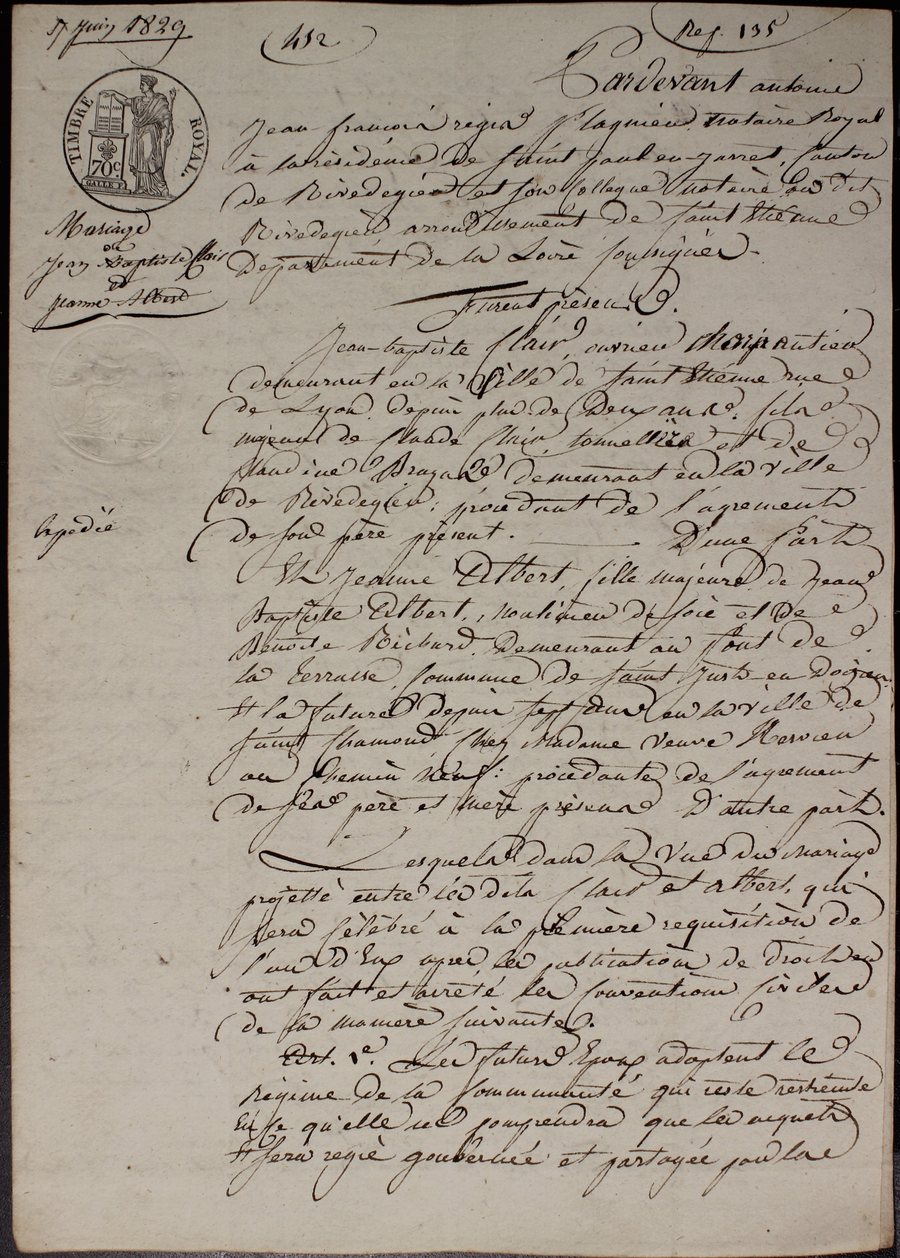 Juin 1829
452
Reg. 135
TIMBRE ROYAL.
70c
Mariage
de
Jean Baptiste Clair
et
Jeanne Albert
Expedié
Pardevant antoine
Jean françois régis notaire Royal
à la résidence de Saint paul en-jarret, Canton
de Rivedegier et son Collegue notaire au dit
Rivedegier, arrondissement de Saint Etienne
Departement de la Loire soussignés.
Furent présens.
Jean-baptiste Clair, ouvrier charpentier
demeurant en la Ville de Saint Etienne rue
de Lyon, depuis plus de Deux ans, fils
majeur de Claude Clair, tonnellier et de
Claudine demeurant en la ville
de Rivedegier; procédant de l'agrement
de son père présent. D'une part
Et Jeanne Albert, fille majeure de Jean
Baptiste Albert, moulinier de soie et de
Benoite Richard, Demeurant au Pont de
la terrasse, Commune de Saint Just en Doizieu
Et la future depuis sept ans en la ville de
Saint Chamond chez Madame veuve
au Chemin Neuf: procédante de l'agrement
de ses père et mère présens D'autre part.
Lesquels dans la Vue du Mariage
projetté entre les dits Clair et Albert, qui
sera célébré à la première requisition de
l'un D'Eux après les publications de droit en
ont fait et arrêté les Conventions Civiles
de la manière suivante.
Art. 1er. Les futurs Epoux adoptent le
Régime de la Communauté qui reste restreinte
En ce qu'elle ne comprendra que les acquets
Et sera regie gouvernée et partagée par la